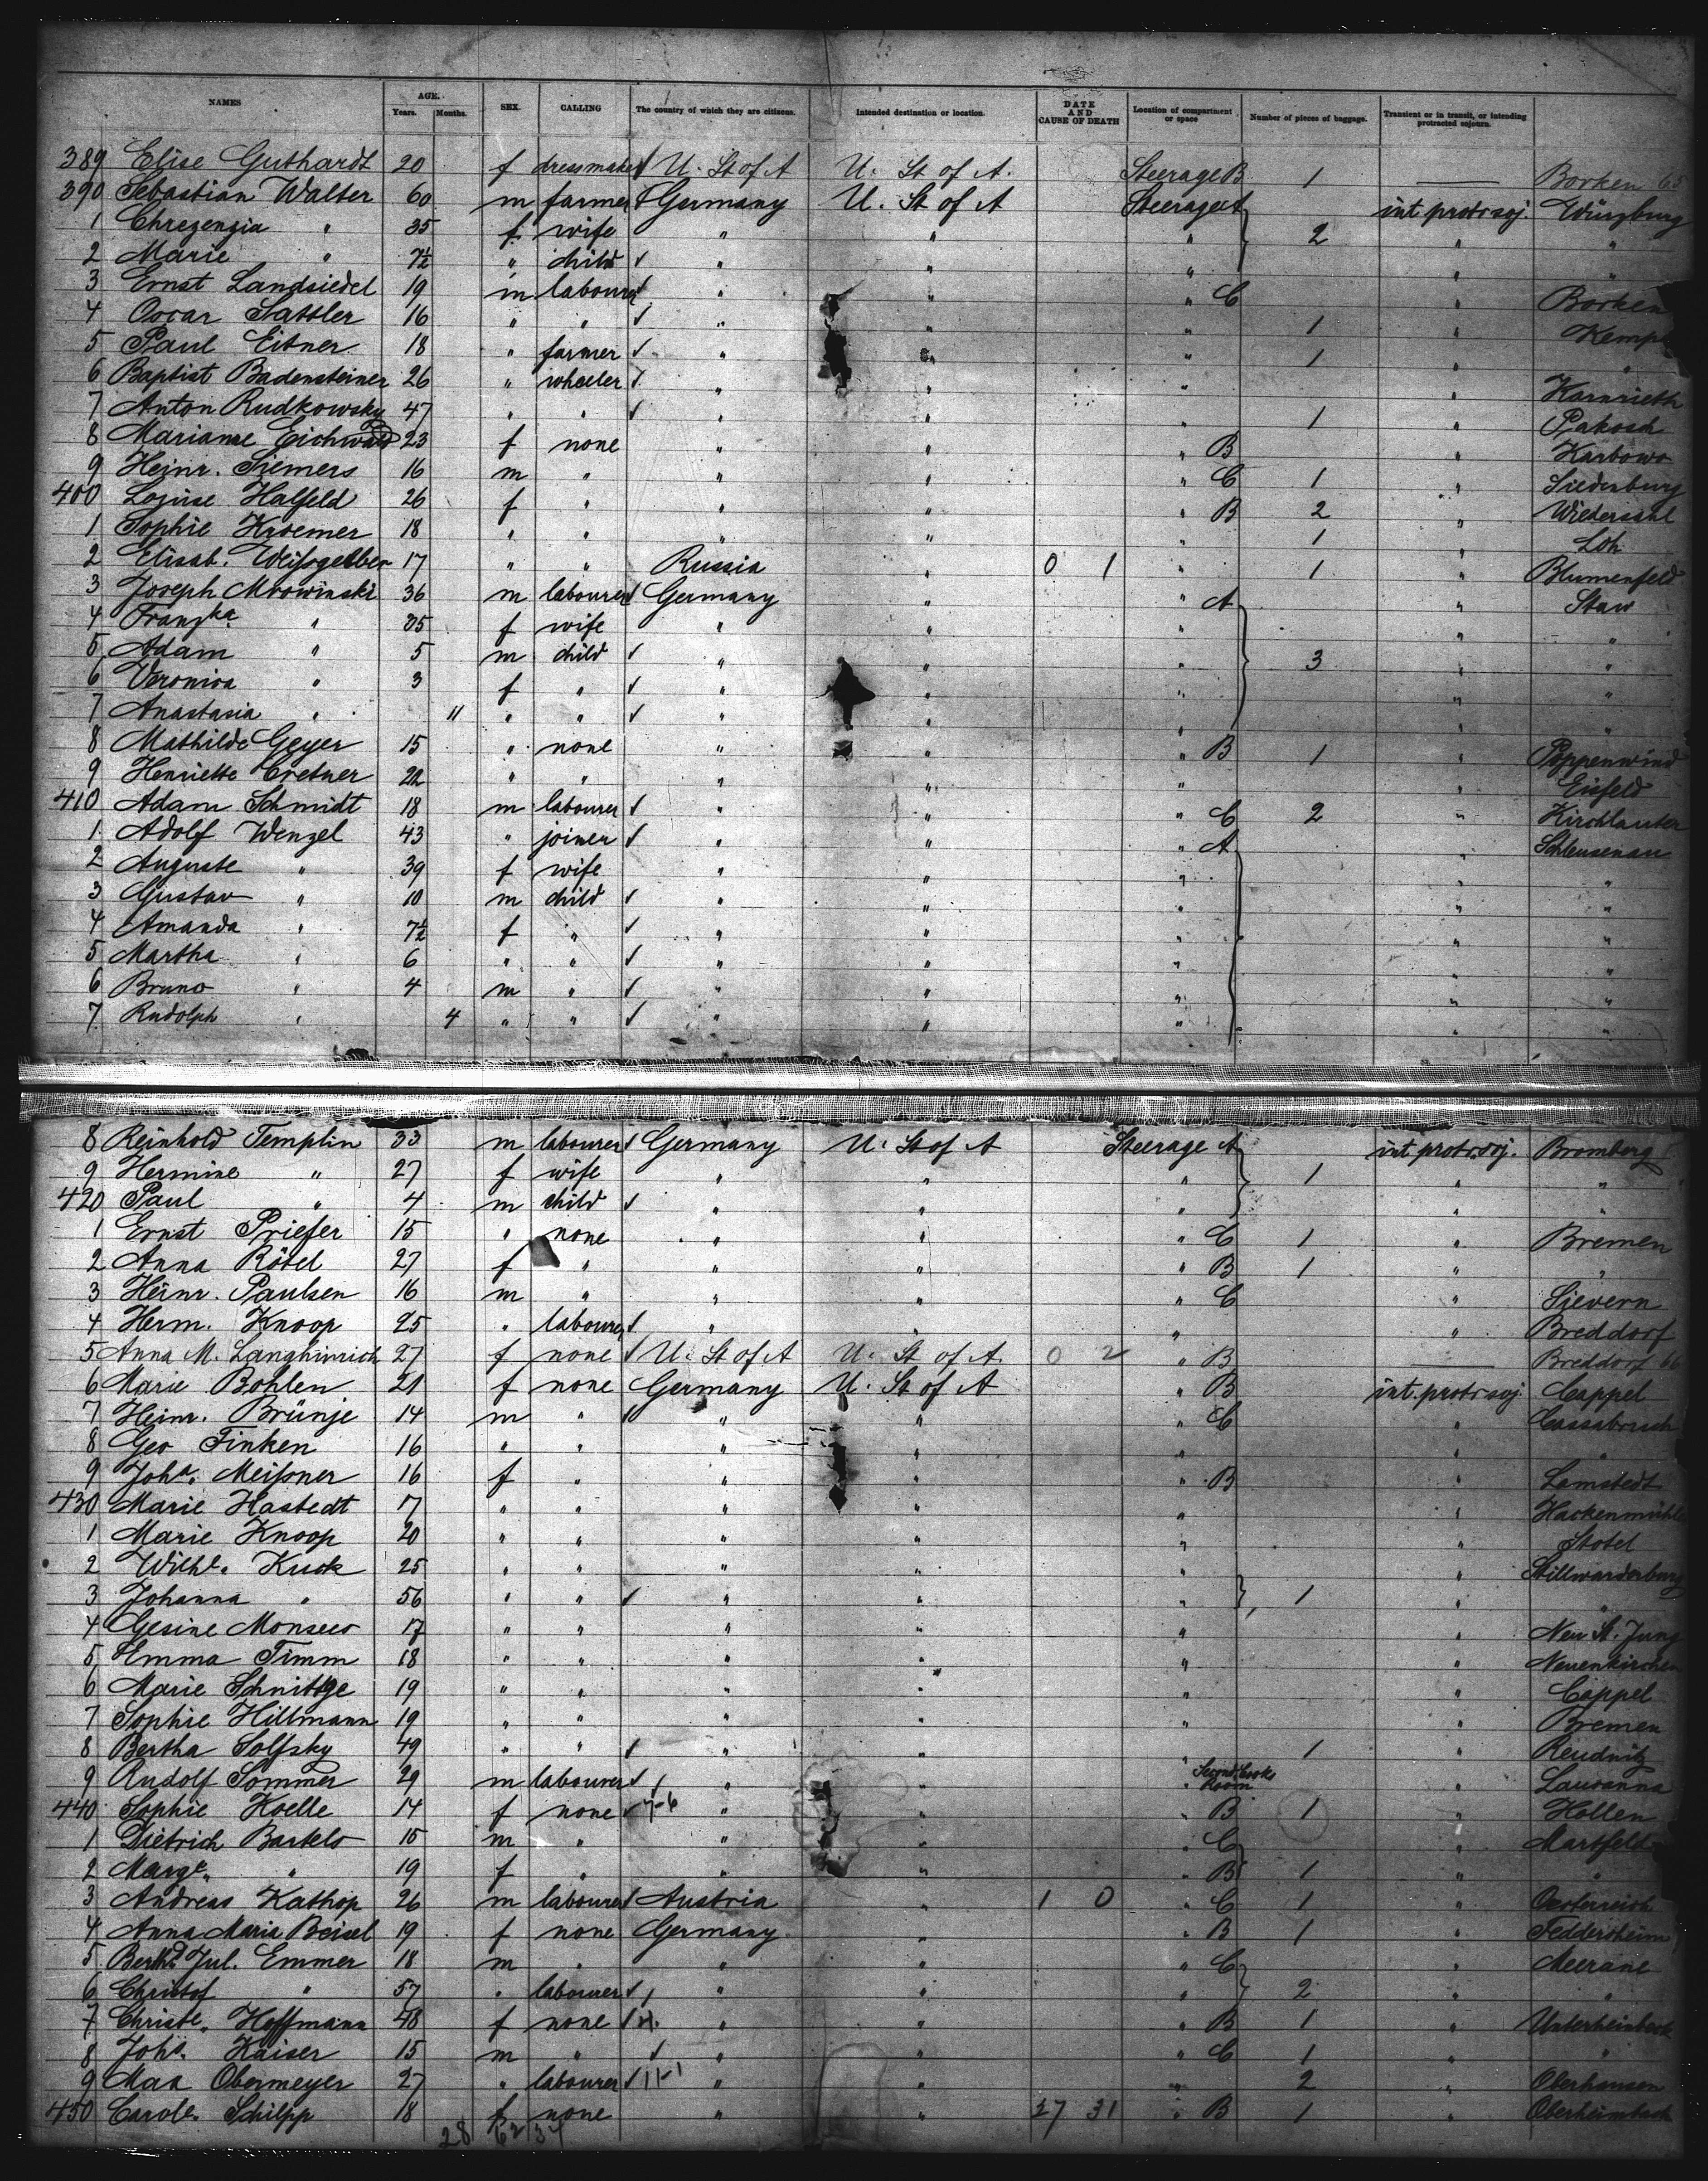 NAMES AGE. Years. Months. SEX. CALLING The country of which they are citizens. Intended destination or location. DATE AND CAUSE OF DEATH Location of compartment or space Number of pieces of baggage. Transient or in transit, or intending protracted sojourn.
389 Elise Guthardt 20 f dressmaker U. St of A U. St of A. Steerage B 1 — Borken 65
390 Sebastian Walter 60 m farmer Germany U. St of A Steerage A int protr soj. Würzburg
1 Chrezenzia " 35 f wife " " " 2 " "
2 Marie " 7½ " child √ " " " " "
3 Ernst Landsiedel 19 m labourer √ " " " C " Borken
4 Oscar Sattler 16 " " √ " " " 1 "
5 Paul Eitner 18 " farmer √ " " " 1 " "
6 Baptist Badensteiner 26 " wheeler √ " " " Karnrieth
7 Anton Rudkowsky 47 " " √ " " " 1 " Pakosch
8 Marianne Eichwald 23 f none " " " B " Karbowo
9 Heinr. Siemers 16 m " " " " C 1 " Siedenburg
400 Louise Halfeld 26 f " " " " B 2 " Wiedersahl
1 Sophie Kroemer 18 " " " " " 1 " Loh
2 Elisab. Weißgerber 17 " " Russia " 0 1 " 1 " Blumenfeld
3 Joseph Mrowinski 36 m labourer √ Germany " " A " Staw
4 Franzka " 35 f wife " " " " "
5 Adam " 5 m child √ " " " 3 " "
6 Veronica " 3 f " √ " " " " "
7 Anastasia " 11 " " √ " " " " "
8 Mathilde Geyer 15 " none " " " B 1 " Poppenwind
9 Henriette Cretner 22 " " " " " " Eisfeld
410 Adam Schmidt 18 m labourer √ " " " C 2 " Kirchlauter
1 Adolf Wenzel 43 " joiner √ " " " A " Schleusenau
2 Auguste " 39 f wife " " " " "
3 Gustav " 10 m child √ " " " " "
4 Amanda " 7½ f " √ " " " " "
5 Martha " 6 " " √ " " " " "
6 Bruno " 4 m " √ " " " " "
7 Rudolph " 4 " " √ " " " " "
8 Reinhold Templin 33 m labourer √ Germany U. St of A Steerage A int protr. soj. Bromberg
9 Hermine " 27 f wife " " " 1 " "
420 Paul " 4 m child √ " " " " "
1 Ernst Priefer 15 " none " " " C 1 " Bremen
2 Anna Rösel 27 f " " " " B 1 " "
3 Heinr. Paulsen 16 m " " " " C " Sievern
4 Herm. Knoop 25 " labourer √ " " " " Breddorf
5 Anna M. Langhinrich 27 f none √ U. St of A U. St of A. 0 2 " B — Breddorf 66
6 Marie Bohlen 21 f none Germany U. St of A " B int. protr soj. Cappel
7 Heinr. Brünje 14 m " " " " C "
8 Geo Tinken 16 " " " " " " "
9 Joha. Meißner 16 f " " " " B " Lamstedt
430 Marie Hastedt 17 " " " " " " Hackenmühle
1 Marie Knoop 20 " " " " " " Stotel
2 Wilhe. Kuck 25 " " " " " "
3 Johanna " 56 " " √ " " " 1 " "
4 Gesine Monsees 17 " " " " " " Neu St. Jung
5 Emma Timm 18 " " " " " " Neuenkirchen
6 Marie Schnittge 19 " " " " " " Cappel
7 Sophie Hillmann 19 " " " " " " Bremen
8 Bertha Solfsky 49 " " √ " " " 1 " Reudnitz
9 Rudolf Sommer 29 m labourer √ " " " Second Cooks Room " Lausanna
440 Sophie Koelle 14 f none √ 7-6 " " " B 1 " Hollen
1 Dietrich Bartels 15 m " " " " C " Martfeld
2 Marge. " 19 f " " " " B 1 " "
3 Andreas Kathop 26 m labourer √ Austria " 1 0 " C 1 " Oesterreich
4 Anna Maria Beisel 19 f none Germany " " B 1 " Feddersheim
5 Berthd. Jul. Emmer 18 m " " " " C " Meerane
6 Christof " 57 " labourer √ " " " 2 " "
7 Christe. Hoffmann 48 f none √ " " " B 1 " Unterheimbach
8 Johs. Kaiser 15 m " √ " " " C 1 " "
9 Max Obermeyer 27 " labourer √ 11-1 " " " 2 " Oberhausen
450 Carole. Schilpp 18 f none " " 27 31 " B 1 " Oberheimbach
28 62 34